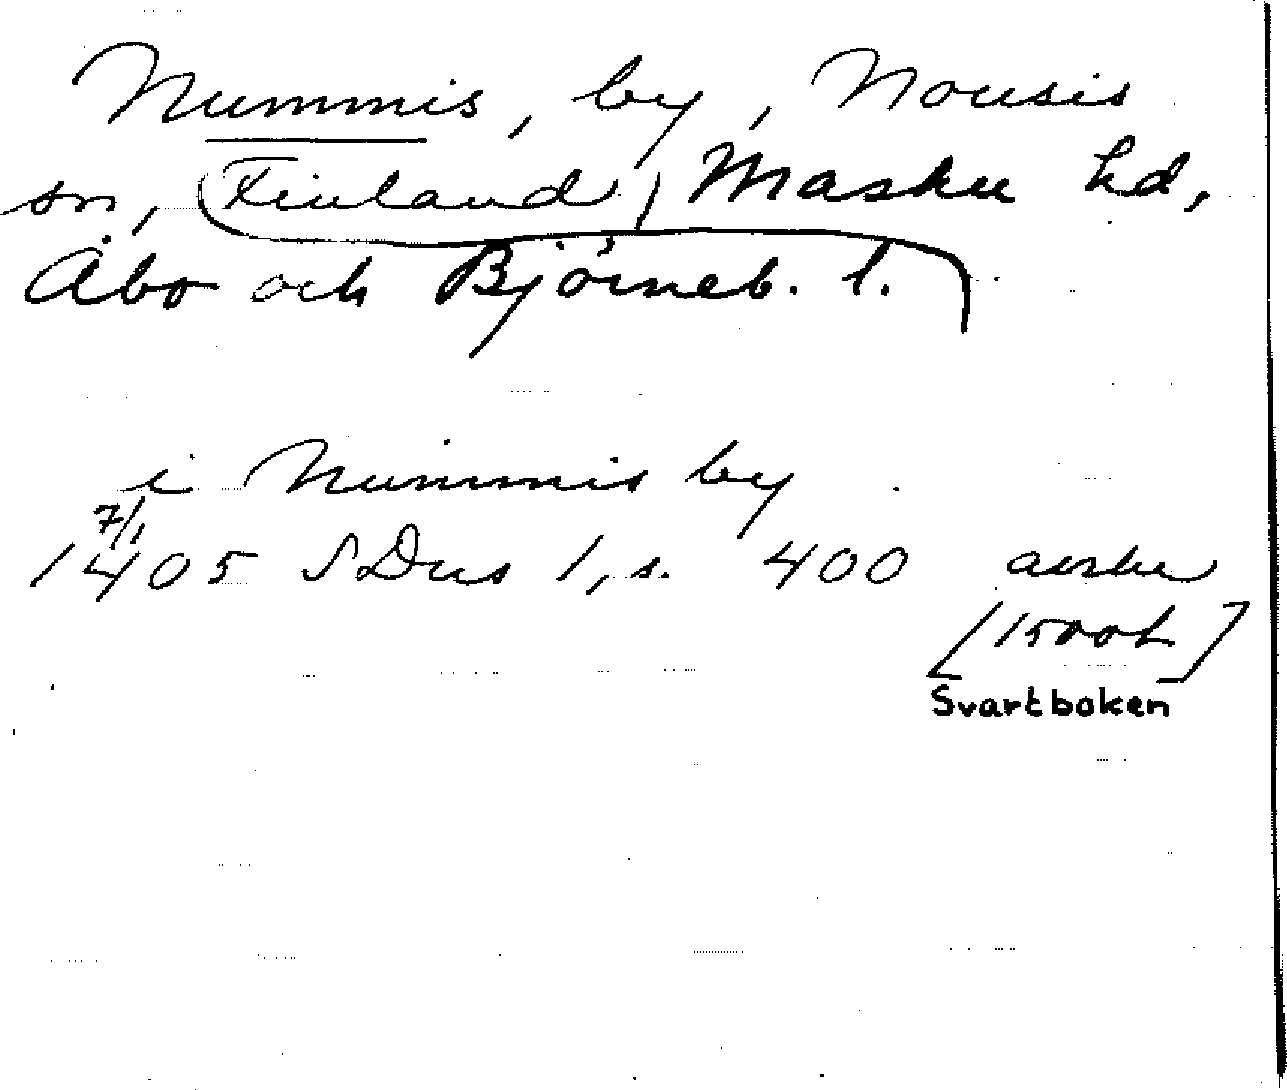 Nummis, by, Nousis
sn, Finland, Masku hd,
Åbo och Björneb. l.
i Nummis by
7/1
1405 SDns 1, s. 400 avskr
[1500t]
Svartboken